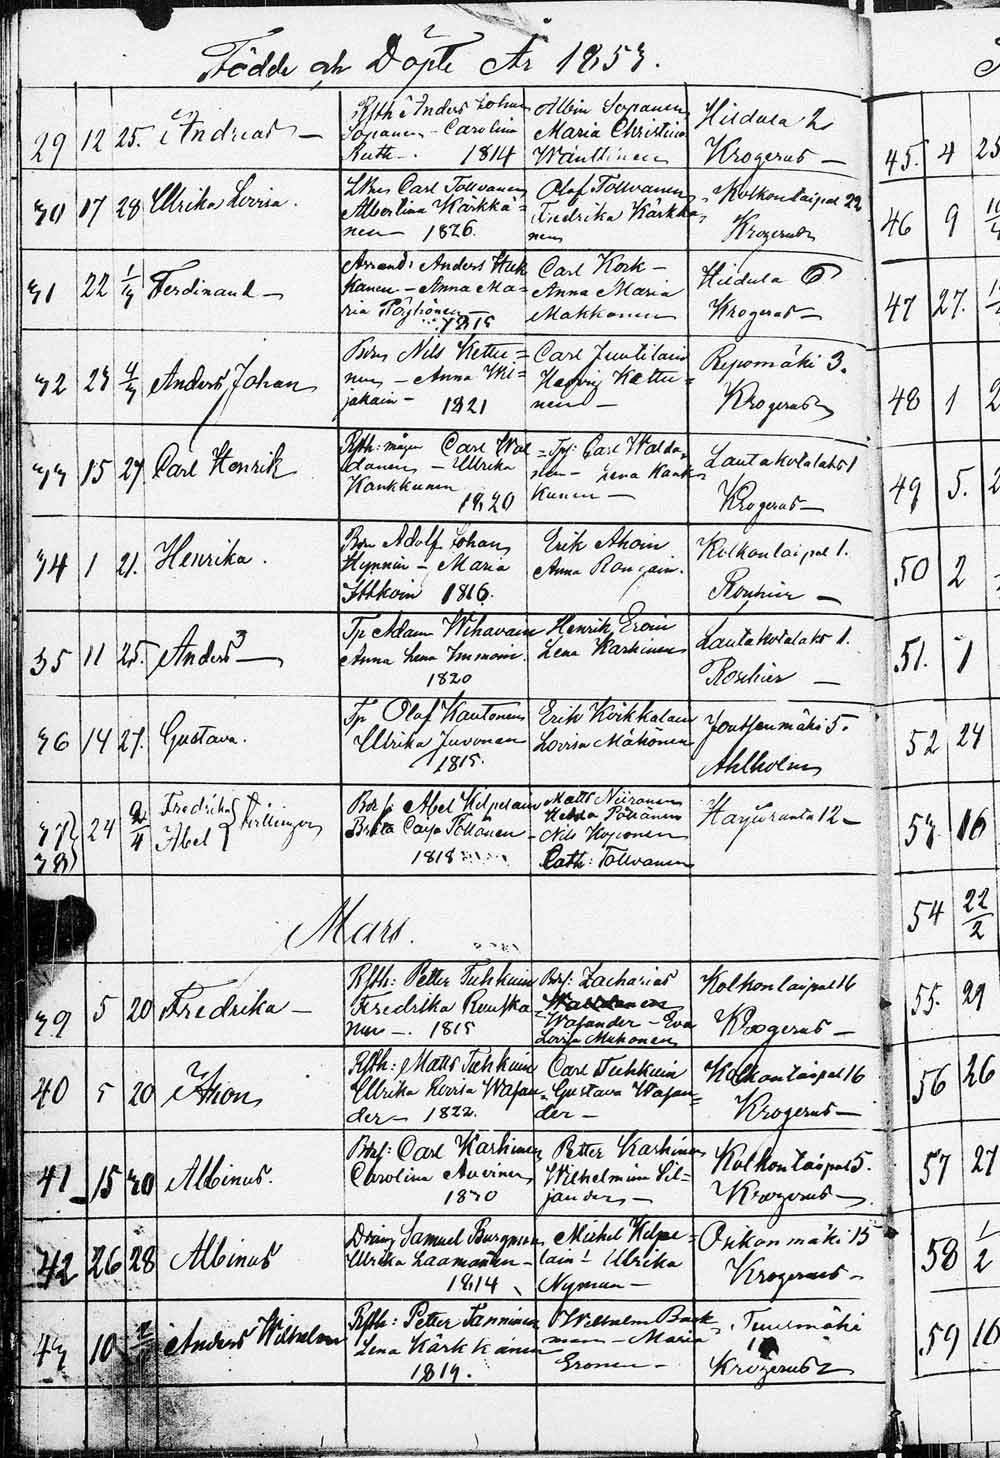 Födde och Döpte År 1853.
29 12 25. Andreas — Rsth Anders Johan Sopanen — Carolina Ruth — 1814 Albin Sopanen Maria Christina Wänttinen Hirdula 2 Krogerus —
30 17 28 Ulrika Lovisa. Carl Tolvanen Albertina Kärkkä= nen — 1826. Olof Tolvanen Fredrika Kärkkä nen Kolkontaipal 22 Krogerus
31 22 1/3 Ferdinand — Arrend: Anders Huk kanen — Anna Ma= ria Pöyhönen — 1815 Carl Kock — Anna Maria Makkonen Hirdula 6 Krogerus —
32 23 4/3 Anders Johan Nils Kettu= nen — Anna Mi= 1821 Carl Juutilain Hedvig Kettu= nen — Repomäki 3. Krogerus
33 15 27 Carl Henrik Rsth: måg Carl Wal danen — Ulrika Kankkunen 1820 Carl Walda= nen — Lena Kank kunen — Lautakotalaks 1 Krogerus —
34 1 21. Henrika. Adolf Johan Hynnin — Maria Ihlkoin 1816. Erik Ahoin Anna Kolkontaipal 1. Roschier —
35 11 25. Anders — Tp Adam Wihavain Anna Lena Immoin. 1820 Henrik Eroin Lena Karhinen Lautakotalaks 1. Roschier —
36 14 27. Gustava. Tp Olof Kautonen Ulrika Juvonen 1815. Erik Koikkalain Lovisa Mähönen Joutsenmäki 5. Ahlholm
37 38 24 2/4 Fredrika Abel Tvillingar Abel Kilpelain Brita Caisa Pöllänen — 1818 Matts Niiranen Hedda Pöllänen Nils Koponen Cath: Tolvanen Hayuranta 12 —
Mars.
39 5 20 Fredrika — Rsth: Petter Tuhkuin Fredrika Ruuska nen — 1815 Bdr: Zacharias Wasander — Eva Lovisa Muhonen Kolkontaipal 16 Krogerus —
40 5 20 Aron Rsth: Matts Tuhkuin Ulrika Lovisa Wasan= der — 1822. Carl Tuhkuin Gustava Wasan= der — Kolkontaipal 16 Krogerus —
41 15 30 Albinus. Bdr: Carl Karhinen Carolina Auvinen 1830 Petter Karhinen Wilhelmina Sil= jander — Kolkontaipal 5. Krogerus —
42 26 28 Albinus Dräng Samuel Burgman Ulrika Laamanen — 1814 Michel Kilpe= lain — Ulrika Nyman — Oukonmäki 15 Krogerus —
43 10 Anders Wilhelm Rsth: Petter Tanninen Lena Kärkkäinen 1819. Wilhelm Back man — Maria Eronen — Tuusmäki Krogerus
45. 4 25
46 9
47 27.
48 1 2
49 5. 2
50 2
51. 1
52 24
53 16
54 22/2
55. 29
56 26
57 27
58 1/2
59 16